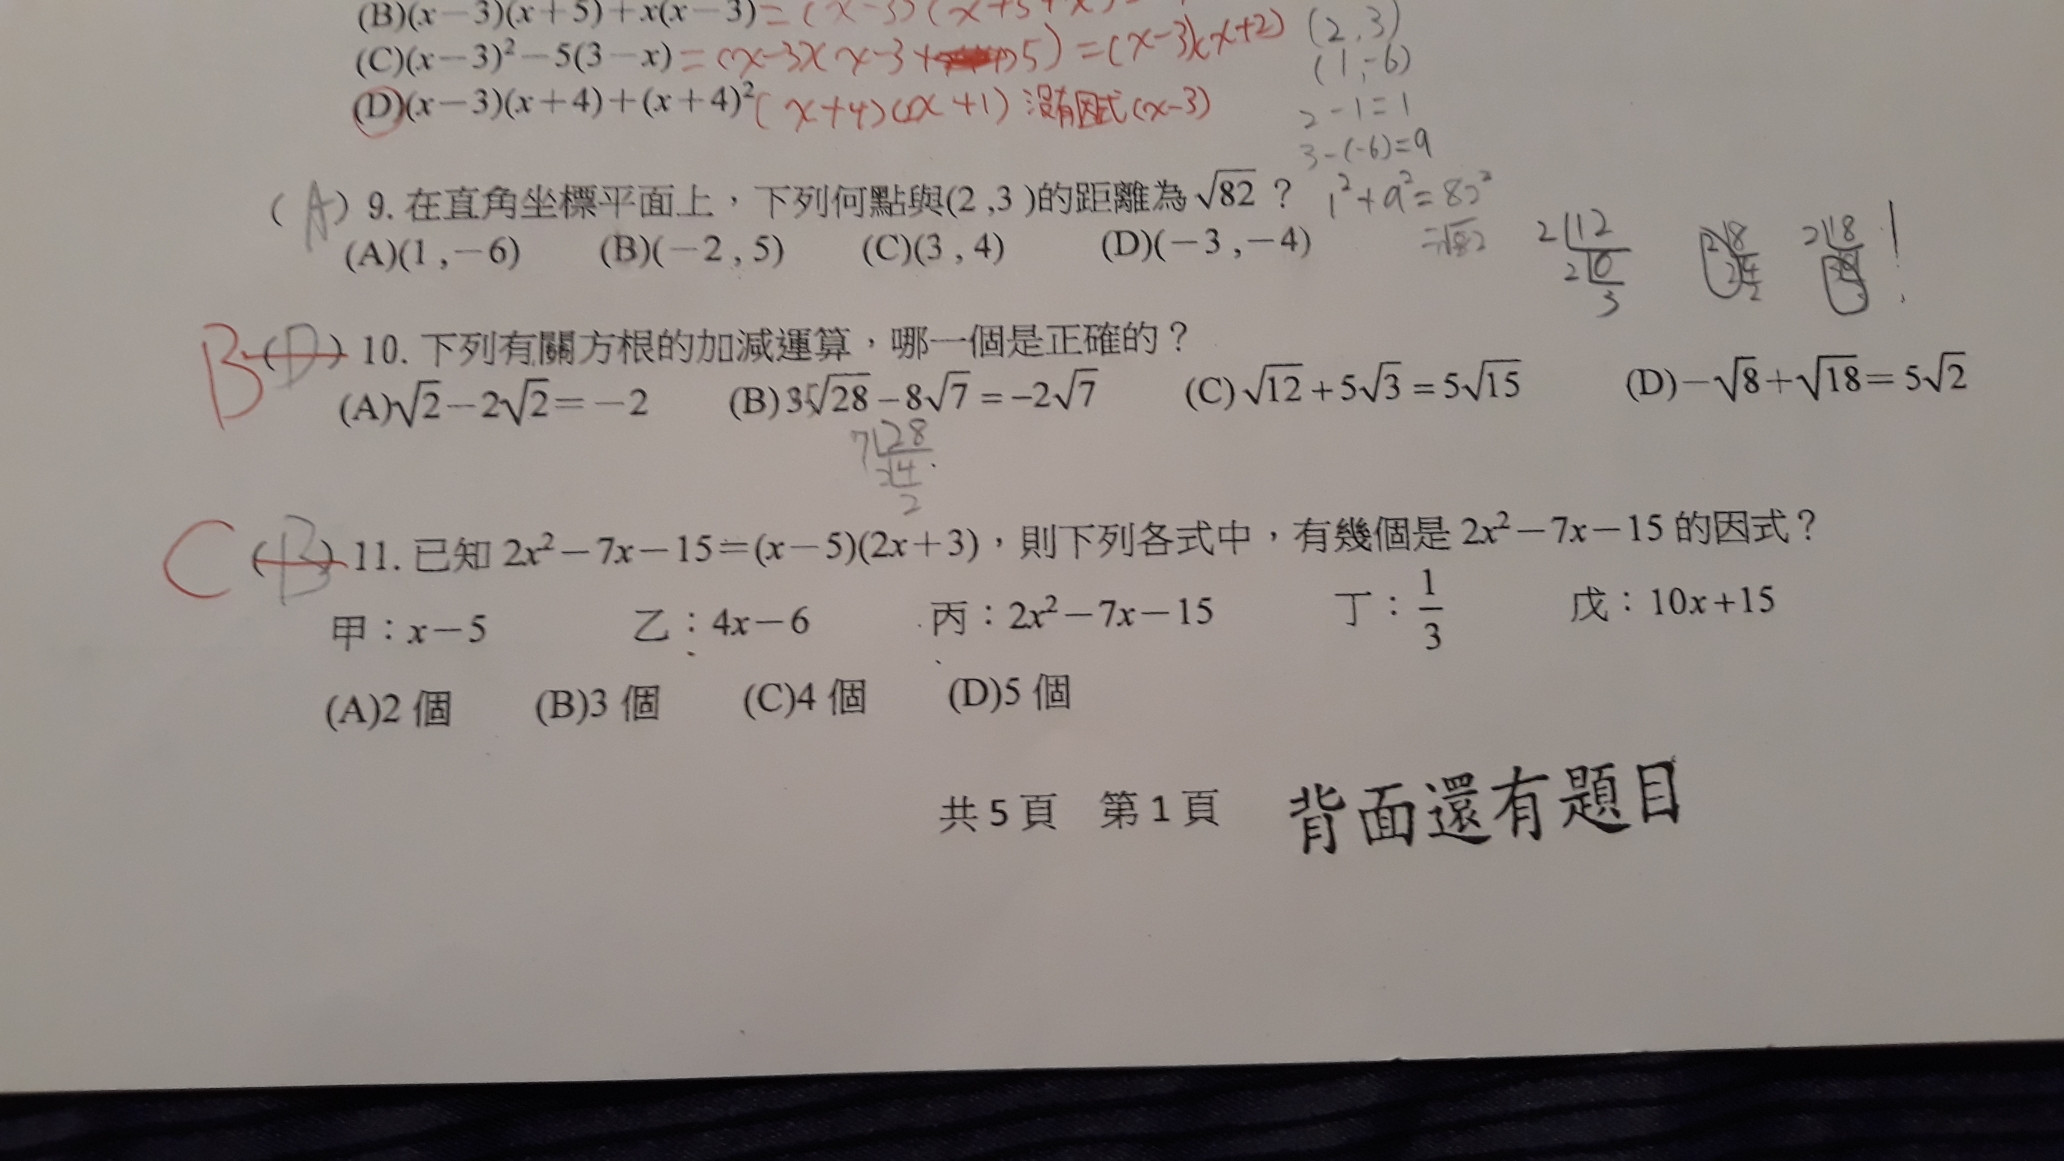 (B)(x－3)(x＋5)＋x(x－3)=(x-3)(x+5+x)
(C)(x－3)²－5(3－x)=(x-3)(x-3+5)=(x-3)(x+2)
(2,3)
(1,-6)
(D)(x－3)(x＋4)＋(x＋4)²(x+4)(2x+1) 沒有因式(x-3)
2-1=1
3-(-6)=9
(A) 9. 在直角坐標平面上，下列何點與(2 ,3 )的距離為√82？ 1²+9²=82²
=√82
(A)(1 ,－6) (B)(－2 , 5) (C)(3 , 4) (D)(－3 ,－4)
2 12
2 6
3
2 8
2 4
2
2 18
!
B (D) 10. 下列有關方根的加減運算，哪一個是正確的？
(A)√2－2√2=－2 (B) 3√28－8√7=－2√7 (C) √12+5√3=5√15 (D)－√8+√18=5√2
7 28
2 4
2
C (B) 11. 已知 2x²－7x－15＝(x－5)(2x＋3)，則下列各式中，有幾個是 2x²－7x－15 的因式？
甲：x－5 乙：4x－6 丙：2x²－7x－15 丁：1/3 戊：10x+15
(A)2 個 (B)3 個 (C)4 個 (D)5 個
共 5 頁 第 1 頁 背面還有題目